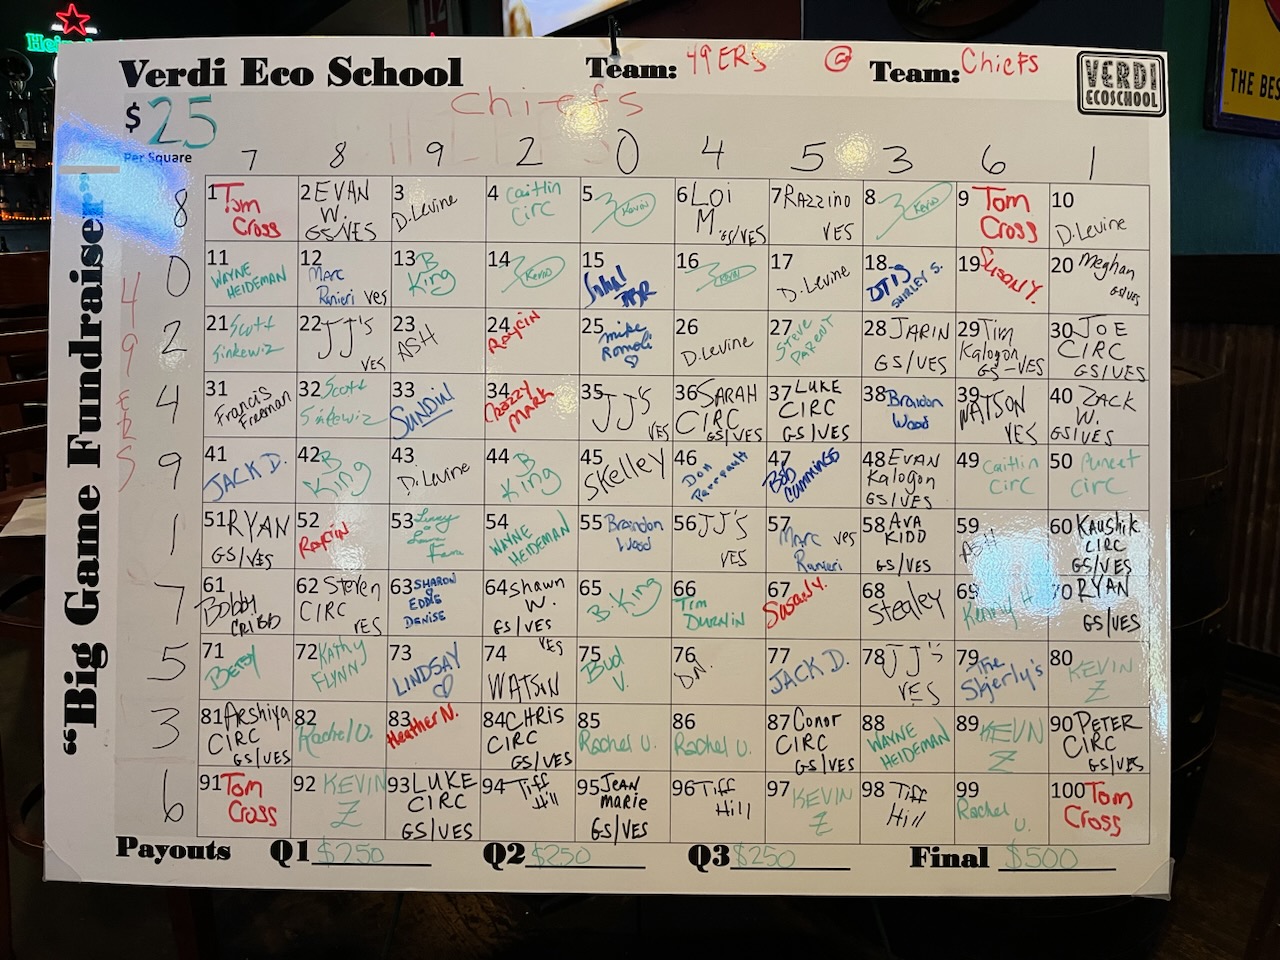 Verdi Eco School
Team: 49ERS @ Team: Chiefs
VERDI
ECOSCHOOL
THE BES
$25
Per Square
Chiefs
"Big Game Fundraiser"
49ERS
7 8 9 2 0 4 5 3 6 1
8
1 Tom Cross
2 EVAN W. GS/VES
3 D.Levine
4 Caitlin Circ
5 Kevin
6 LOI M. GS/VES
7 RAZZINO VES
8 Kevin
9 Tom Cross
10 D.Levine
0
11 WAYNE HEIDEMAN
12 Marc Ranieri VES
13 B King
14 Kevin
15
16 Kevin
17 D.Levine
18 OTIS SHIRLEY S.
19 Susan Y.
20 Meghan GS/VES
2
21 Scott Sinkewiz
22 JJ'S VES
23 ASH
24
25 mike Romoli
26 D.Levine
27 Steve PARENT
28 JARIN GS/VES
29 Tim Kalogon GS-VES
30 JOE CIRC GS/VES
4
31 Francis Freeman
32 Scott Sinkewiz
33 SUNDIN
34 Crazzy MARK
35 JJ'S VES
36 SARAH CIRC GS/VES
37 LUKE CIRC GS/VES
38 Brandon Wood
39 WATSON VES
40 ZACK W. GS/VES
9
41 JACK D.
42 B King
43 D.Levine
44 B King
45 Skelley
46 Don Perrault
47 Bob Cummings
48 EVAN Kalogon GS/VES
49 Caitlin Circ
50 Puneet Circ
1
51 RYAN GS/VES
52
53
54 WAYNE HEIDEMAN
55 Brandon Wood
56 JJ'S VES
57 Marc VES Ranieri
58 AVA KIDD GS/VES
59 ASH
60 Kaushik CIRC GS/VES
7
61 Bobby CRIBB
62 Steven CIRC VES
63 SHARON EDDIE DENISE
64 Shawn W. GS/VES
65 B. King
66 Tim DURNIN
67 Susan Y.
68
69 Kenny H
70 RYAN GS/VES
5
71 Betsy
72 Kathy FLYNN
73 LINDSAY
74 VES WATSON
75 Bud V.
76 DN.
77 JACK D.
78 JJ'S VES
79 The Skerly's
80 KEVIN Z
3
81 Arshiya CIRC GS/VES
82 Rachel U.
83 Heather N.
84 CHRIS CIRC GS/VES
85 Rachel U.
86 Rachel U.
87 Conor CIRC GS/VES
88 WAYNE HEIDEMAN
89 KEVIN Z
90 PETER CIRC GS/VES
6
91 Tom Cross
92 KEVIN Z
93 LUKE CIRC GS/VES
94 Tiff Hill
95 JEAN MARIE GS/VES
96 Tiff Hill
97 KEVIN Z
98 Tiff Hill
99 Rachel U.
100 Tom Cross
Payouts Q1 $250 Q2 $250 Q3 $250 Final $500